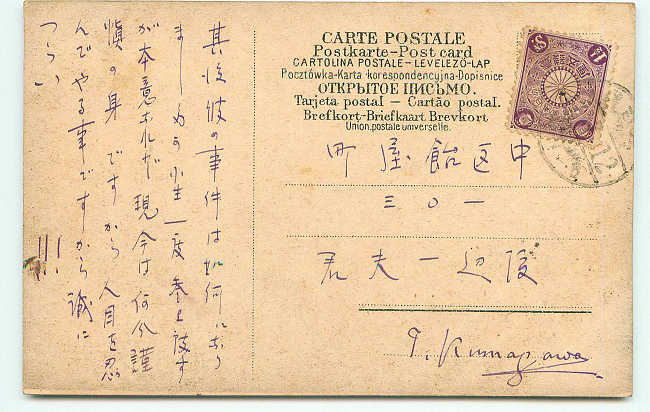 CARTE POSTALE
Postkarte-Post card
CARTOLINA POSTALE-LEVELEZŐ-LAP
Pocztówka-Karta korespondencyjna-Dopisnice
ОТКРЫТОЕ ПИСЬМО.
Tarjeta postal - Cartão postal.
Brefkort-Briefkaart Brevkort
Union postale universelle.
中区飴屋町
一〇三
渡辺一夫君
T. Kumagawa
其後彼の事件は如何になり
ましたか 小生一度参上致す
が本意なれど現今は何分謹
慎の身ですから人目を忍
んでやる事ですから誠に
つらい